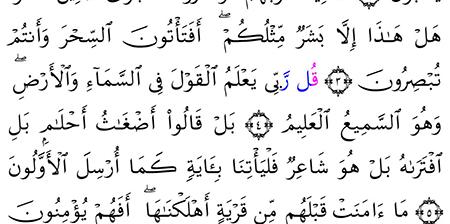 هَلْ هَـٰذَآ إِلَّا بَشَرٌ مِّثْلُكُمْ ۖ أَفَتَأْتُونَ ٱلسِّحْرَ وَأَنتُمْ
تُبْصِرُونَ ﴿٣﴾ قُل رَّبِّى يَعْلَمُ ٱلْقَوْلَ فِى ٱلسَّمَآءِ وَٱلْأَرْضِ ۖ
وَهُوَ ٱلسَّمِيعُ ٱلْعَلِيمُ ﴿٤﴾ بَلْ قَالُوٓا۟ أَضْغَـٰثُ أَحْلَـٰمٍۭ بَلِ
ٱفْتَرَىٰهُ بَلْ هُوَ شَاعِرٌ فَلْيَأْتِنَا بِـَٔايَةٍ كَمَآ أُرْسِلَ ٱلْأَوَّلُونَ
﴿٥﴾ مَآ ءَامَنَتْ قَبْلَهُم مِّن قَرْيَةٍ أَهْلَكْنَـٰهَآ ۖ أَفَهُمْ يُؤْمِنُونَ